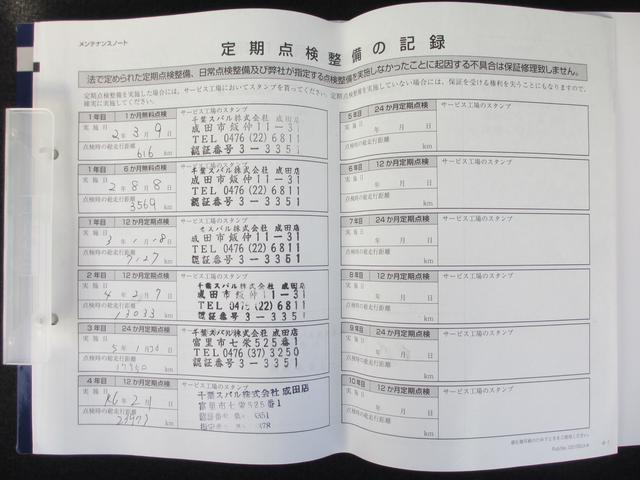 メンテナンスノート
定期点検整備の記録
法で定められた定期点検整備、日常点検整備及び弊社が指定する点検整備を実施しなかったことに起因する不具合は保証修理致しません。
定期点検整備を実施した場合には、サービス工場においてスタンプを貰ってください。定期点検整備を実施していない場合には、保証を受ける権利を失うことにもなりますので、
確実に実施してください。
1年目 1か月無料点検 サービス工場のスタンプ
実施日 2年3月9日
点検時の総走行距離
616 km
千葉スバル株式会社 成田店
成田市飯仲11-31
TEL 0476(22)6811
認証番号3-3351
1年目 6か月無料点検 サービス工場のスタンプ
実施日 2年8月8日
点検時の総走行距離
3569 km
千葉スバル株式会社 成田店
成田市飯仲11-31
TEL 0476(22)6811
認証番号3-3351
1年目 12か月定期点検 サービス工場のスタンプ
実施日 3年1月18日
点検時の総走行距離
7127 km
スバル株式会社 成田店
成田市飯仲11-31
TEL 0476(22)6811
認証番号3-3351
2年目 12か月定期点検 サービス工場のスタンプ
実施日 4年2月7日
点検時の総走行距離
13033 km
千葉スバル株式会社 成田店
成田市飯仲11-31
TEL 0476(22)6811
認証番号3-3351
3年目 24か月定期点検 サービス工場のスタンプ
実施日 5年1月30日
点検時の総走行距離
17350 km
千葉スバル株式会社 成田店
富里市七栄525番1
TEL 0476(37)3250
認証番号3-3351
4年目 12か月定期点検 サービス工場のスタンプ
実施日 R6年2月 日
点検時の総走行距離
km
千葉スバル株式会社 成田店
富里市七栄525番1
5年目 24か月定期点検 サービス工場のスタンプ
実施日 年 月 日
点検時の総走行距離
km
6年目 12か月定期点検 サービス工場のスタンプ
実施日 年 月 日
点検時の総走行距離
km
7年目 24か月定期点検 サービス工場のスタンプ
実施日 年 月 日
点検時の総走行距離
km
8年目 12か月定期点検 サービス工場のスタンプ
実施日 年 月 日
点検時の総走行距離
km
9年目 24か月定期点検 サービス工場のスタンプ
実施日 年 月 日
点検時の総走行距離
km
10年目 12か月定期点検 サービス工場のスタンプ
実施日 年 月 日
点検時の総走行距離
km